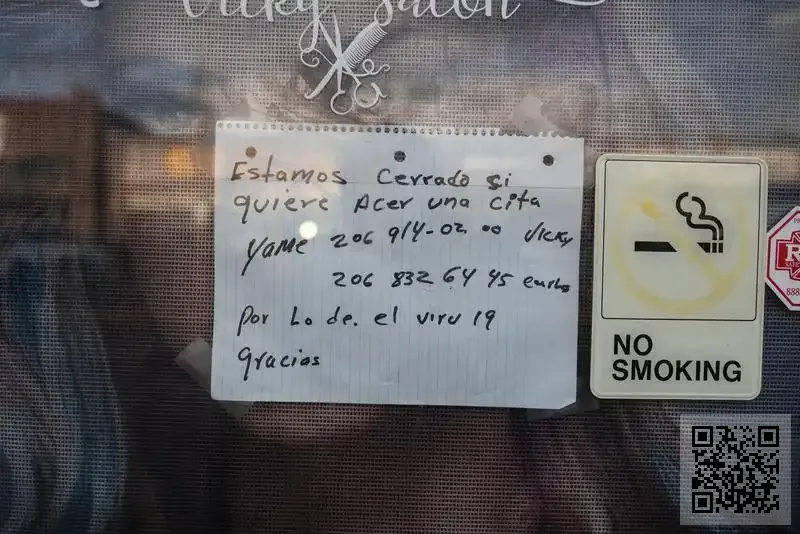 Vicky Salon
Estamos Cerrado si
quiere Acer una cita
Yame 206 914-02 00 Vicky
206 832 64 45
por Lo de. el viru 19
gracias
NO
SMOKING
R
888